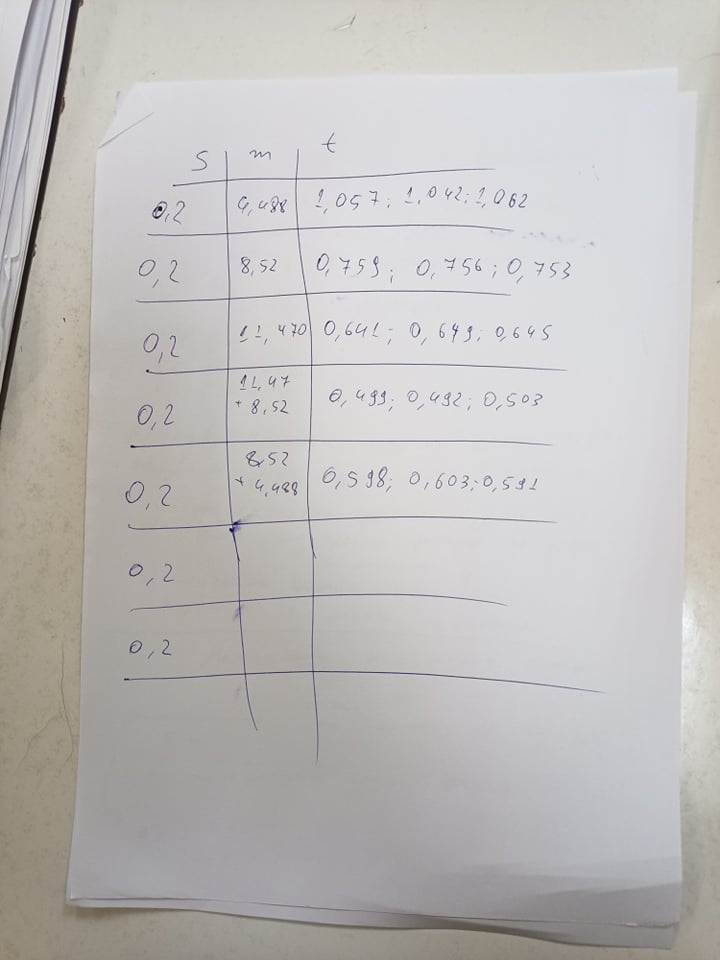 S m t
0,2 4,488 1,057; 1,042; 1,062
0,2 8,52 0,759; 0,756; 0,753
0,2 11,470 0,641; 0,649; 0,645
0,2 11,47 + 8,52 0,499; 0,492; 0,503
0,2 8,52 + 4,488 0,598; 0,603; 0,591
0,2
0,2